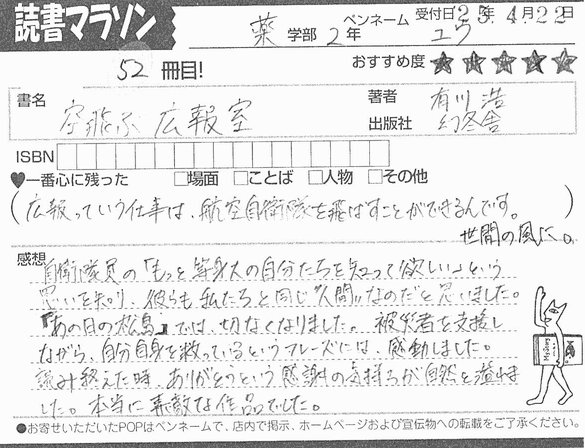 読書マラソン
薬学部 2年
ペンネーム ユウ
受付日 25年 4月22日
52冊目!
おすすめ度 ★★★★★
書名 空飛ぶ広報室
著者 有川 浩
出版社 幻冬舎
ISBN
♥一番心に残った □場面 □ことば □人物 □その他
(広報っていう仕事は、航空自衛隊を飛ばすことができるんです。)
世間の風に。
感想
自衛隊員の「もっと等身大の自分たちを知って欲しい」という
思いを知り、彼らも私たちと同じ"人間"なのだと思いました。
『あの日の松島』では、切なくなりました。被災者を支援し
ながら、自分自身を救っているというフレーズには、感動しました。
読み終えた時、ありがとうという感謝の気持ちが自然と溢れま
した。本当に素敵な作品でした。
●お寄せいただいたPOPはペンネームで、店内で掲示、ホームページおよび宣伝物への転載をご了承ください。